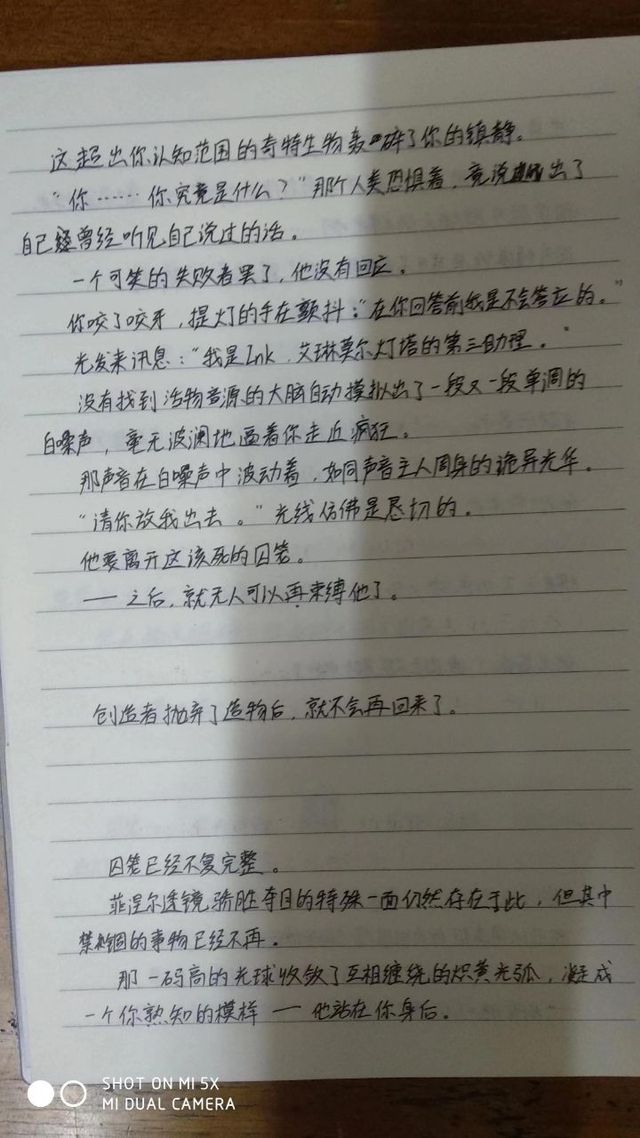 这超出你认知范围的奇特生物轰碎了你的镇静。
“你……你究竟是什么？”那个人类恐惧着，竟说出了
自己曾经听见自己说过的话。
一个可笑的失败者罢了，他没有回应。
你咬了咬牙，提灯的手在颤抖：“在你回答前我是不会答应的。”
光发来讯息：“我是Ink，艾琳莫尔灯塔的第三助理。”
没有找到活物音源的大脑自动模拟出了一段又一段单调的
白噪声，毫无波澜地逼着你走近疯狂。
那声音在白噪声中波动着，如同声音主人周身的诡异光华。
“请你放我出去。”光线仿佛是恳切的。
他要离开这该死的囚笼。
——之后，就无人可以再束缚他了。
创造者抛弃了造物后，就不会再回来了。
囚笼已经不复完整。
菲涅尔透镜骄胜夺目的特殊一面仍然存在于此，但其中
禁锢的事物已经不再。
那一码高的光球收敛了互相缠绕的炽黄光弧，凝成
一个你熟知的模样——他站在你身后。
SHOT ON MI 5X
MI DUAL CAMERA